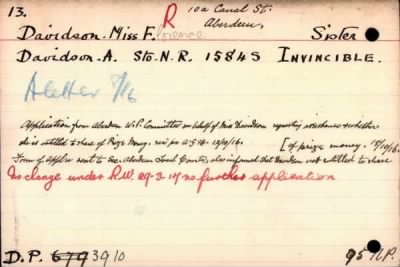 13. R 10a Canal St.
Aberdeen.
Davidson. Miss F. lorence Sister
Davidson. A. Sto. N.R. 1584S INVINCIBLE.
A letter 9/16
Application from Aberdeen W.P. Committee on behalf of Miss Davidson requesting assistance & whether
she is entitled to share of Prize Money. 12/10/16. [of prize money. 18/10/16.
Form of Applon sent to Sec. Aberdeen Local Comtee, also informed that Davidson not entitled to share
No change under R.W. 29-3-17 no further application
D.P. 679 3910 95 N.P.